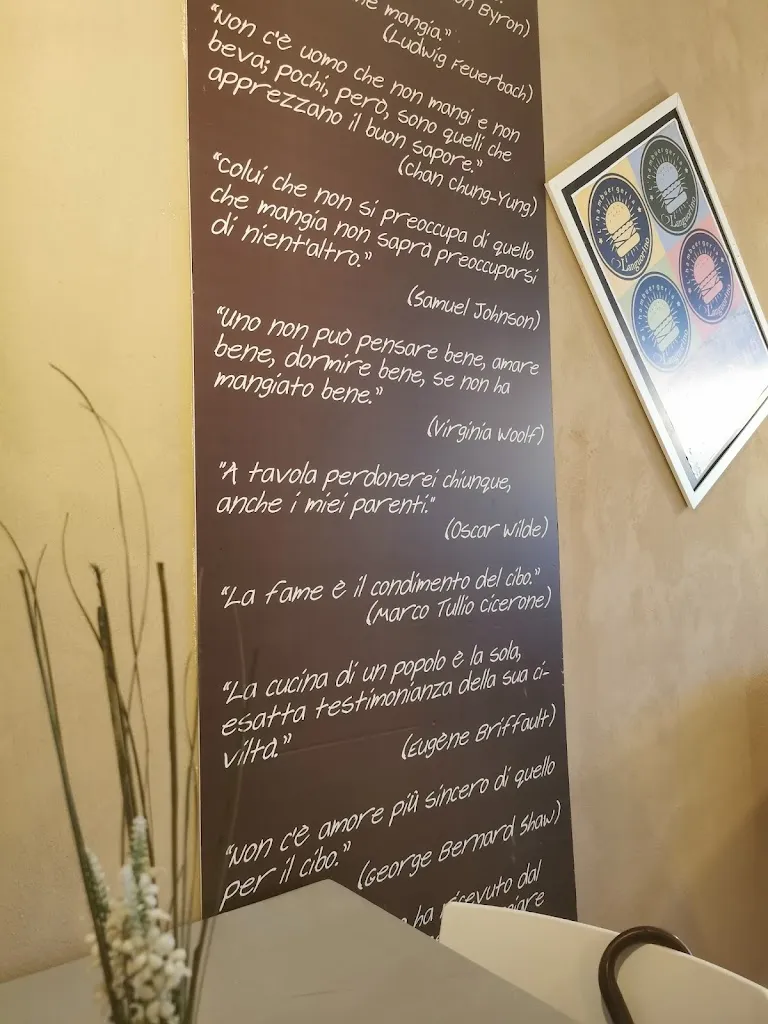 Byron)
che mangia."
(Ludwig Feuerbach)
"Non c'è uomo che non mangi e non
beva; pochi, però, sono quelli che
apprezzano il buon sapore."
(chan chung-Yung)
"colui che non si preoccupa di quello
che mangia non saprà preoccuparsi
di nient'altro."
(Samuel Johnson)
"uno non può pensare bene, amare
bene, dormire bene, se non ha
mangiato bene."
(Virginia Woolf)
"A tavola perdonerei chiunque,
anche i miei parenti."
(Oscar Wilde)
"La fame è il condimento del cibo."
(Marco Tullio cicerone)
"La cucina di un popolo è la sola,
esatta testimonianza della sua ci-
viltà."
(Eugène Briffault)
"Non c'è amore più sincero di quello
per il cibo."
(George Bernard Shaw)
ha ricevuto dal
hamburgeria
Il Languorino
hamburgeria
Il Languorino
hamburgeria
Il Languorino
hamburgeria
Il Languorino